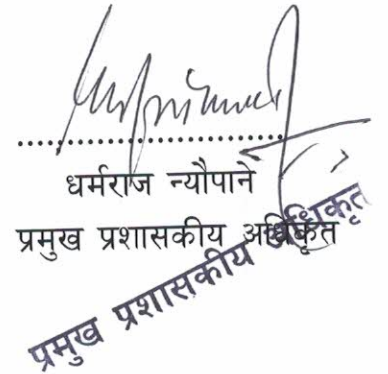 धर्मराज न्यौपाने
प्रमुख प्रशासकीय अधिकृत
प्रमुख प्रशासकीय अधिकृत